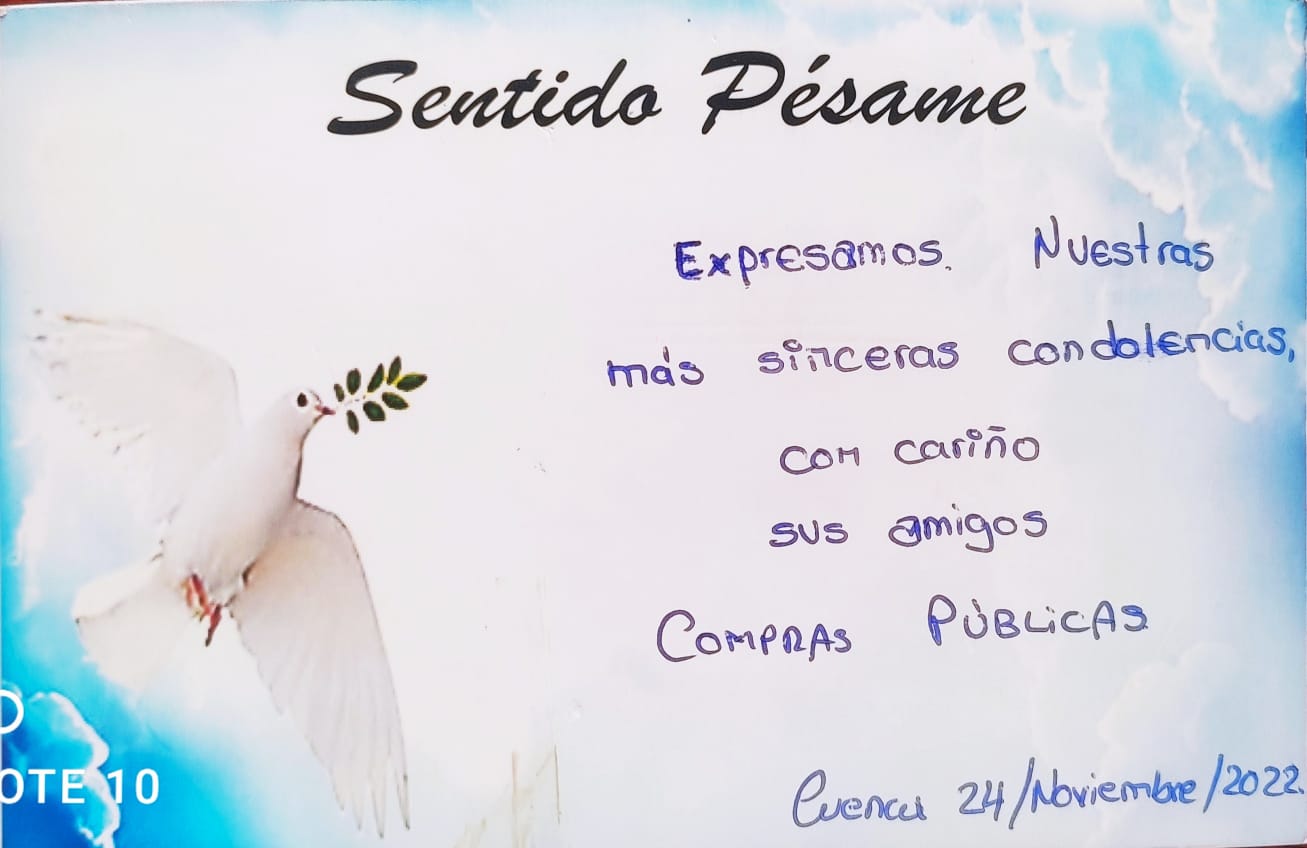 Sentido Pésame
Expresamos. Nuestras
más sinceras condolencias,
con cariño
sus amigos
COMPRAS PÚBLICAS
Cuenca 24/Noviembre/2022.
OTE 10